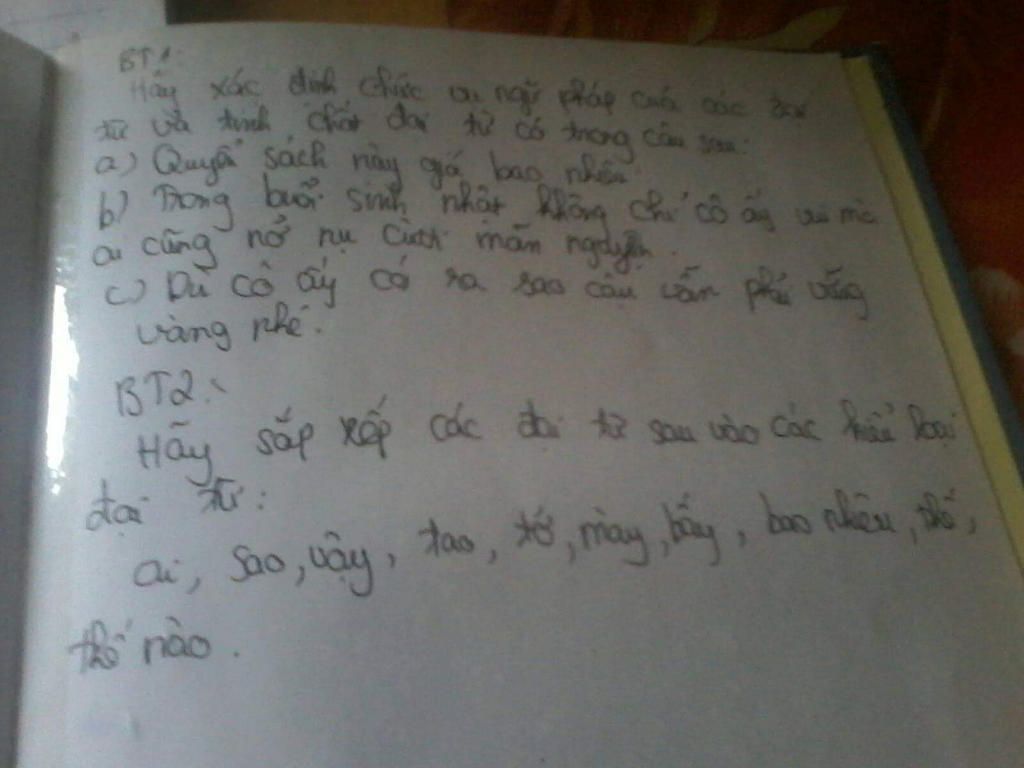 BT1:
Hãy xác định chức vụ ngữ pháp của các đại
từ và tính chất đại từ có trong câu sau:
a) Quyển sách này giá bao nhiêu
b) Trong buổi sinh nhật không chỉ cô ấy vui mà
ai cũng nở nụ cười mãn nguyện.
c) Dù cô ấy có ra sao cậu vẫn phải vững
vàng nhé.
BT2:
Hãy sắp xếp các đại từ sau vào các kiểu loại
đại từ:
ai, sao, vậy, tao, tớ, mày, bấy, bao nhiêu, thế,
thế nào.